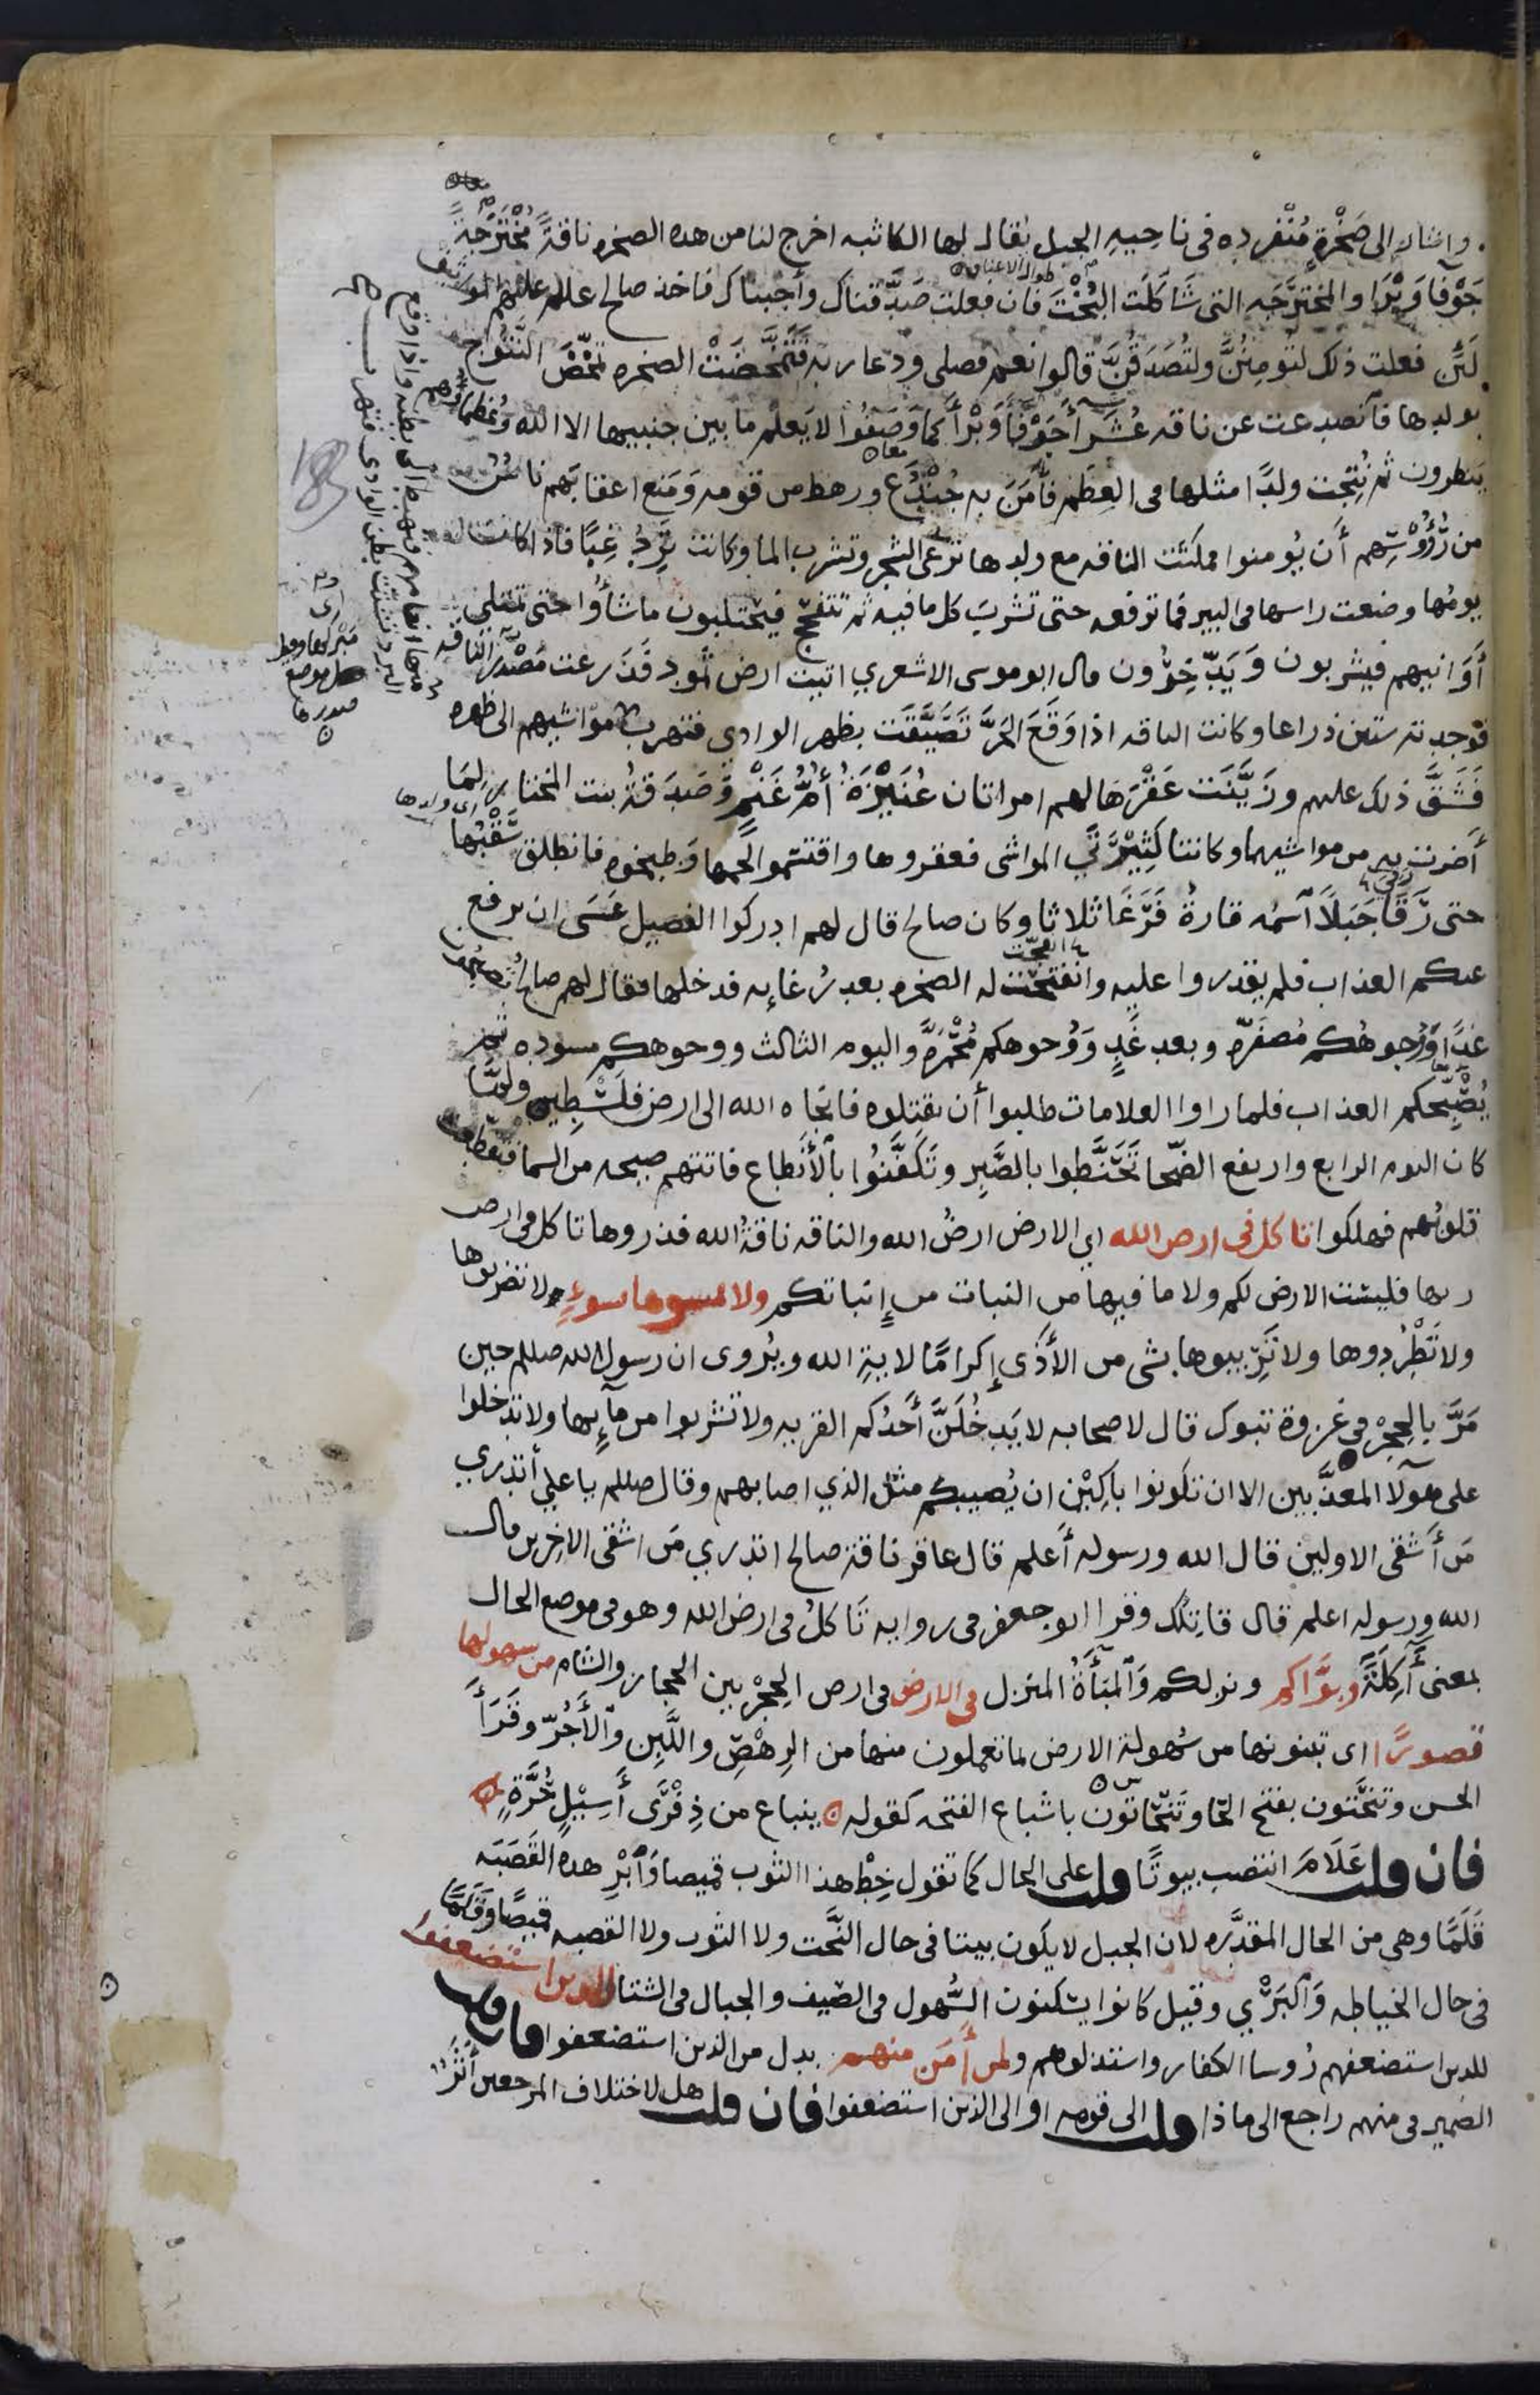 واشار الى صَخْرَةٍ مُنْفرده فى ناحِيهِ الجبل يقال لها الكاثبه اخرج لنا من هده الصخره ناقةً مُخْتَرَجَةً
جَوْفَا وَبْرَا والمخترَجَه التى شَاكَلَت البُخْتَ فان فعلت صَدَّقناك وأجبناك فاخذ صالح عللم عليهم المواثيق
لَئِن فعلت ذلك لتومِنُنَّ ولتُصَدقُنَّ قالوا نعم فصلى ودعا ربه فَتَمَخَّضَتْ الصخره تمَخّضَ النَّتُوج
بولدها فآنصدعت عن ناقه عُشَرَآ جَوْفَآ وَبْرَآ كما وَصَفُوا لا يَعلَم ما بين جنبيها الا الله وعُظَماؤهم
ينظرون ثم نُتِجت ولدًا مثلها فى العِظَم فآمَنَ به جُنْدَع ورهط من قومه وَمَنع اعقابَهم ناسٌ
من رُؤُوْسِهم أَن يُومنوا فمكثت الناقه مع ولدها ترعى الشجر وتشرب الما وكانت تَرِدُ غِبًّا فاذا كانت
يومُها وضعت راسها فى البير فما ترفعه حتى تشربَ كل ما فيه ثم تتفحّج فيحتلبون ما شاؤُا حتى تمتلى
أَوَانيهم فيشربون وَيَدّخِرُون قال ابو موسى الاشعري اتيت ارض ثمود فَذَرعت مَصْدَر الناقه
فوجدته ستين ذراعا وكانت الناقه اذا وَقَعَ الحَرّ تَصَيَّفَت بظهر الوادي فتهرب منها مواشيهم الى ظهره
فَشَقَّ ذلك عليهم وزَيَّنَت عَقْرَهَا لهم امراتان عُنَيْزَةُ أُمُّ غَنَمٍ وَصَدَقَةُ بنت المختار لِمَا
أضرّت به من مواشيهما وكانتا كَثِيْرَتَي المواشى فعقروها واقتسموا لحمها وطبخوه فانطلق سَقْبُها
حتى رَقَا جَبَلاً آسمُه قارةُ فَرَغَا ثلاثا وكان صالح قال لهم ادركوا الفصيل عَسَى ان يرفع
عنكم العذاب فلم يقدروا عليه وانفتحت له الصخره بعد رُغائه فدخلها فقال لهم صالح تصبحون
غدًا وَوُجوهُكم مُصفَرّه وبعد غَدٍ وَوُجوهكم مُحْمَرّه واليوم الثالث ووجوهكم مسوده ثم
يُصَبِّحكم العذاب فلما راوا العلامات طلبوا أن يقتلوه فانجاه الله الى ارض فلَسْطِين ولمّا
كان اليوم الرابع وارتفع الضّحا تَحَنَّطوا بالصَّبِر وتَكَفَّنُوا بالأَنْطاع فاتتهم صيحه من السما فتقطعت
قلوبُهم فهلكوا تاكل فى ارض الله اي الارض ارضُ الله والناقه ناقةُ الله فذروها تاكل فى ارض
ربها فليست الارض لكم ولا ما فيها من النبات من إنباتكم ولا تمسوها بسوءٍ ولا تضربوها
ولا تَطْرُدوها ولا تَرِيبوها بشى من الأَذَى إكرامًا لايةِ الله ويُروى ان رسول الله صللم حين
مَرَّ بالحِجْر فى غزوة تبوك قال لاصحابه لا يَدخُلَنَّ أَحَدُكم القريه ولا تشربوا من مآئِها ولا تدخلوا
على هولا المعذَّبين الا ان تكونوا باكِيْن ان يُصيبكم مثل الذي اصابهم وقال صللم يا علي أتدري
مَن أَشقَى الاولين قال الله ورسوله أَعلم قال عاقر ناقة صالح اتدري مَن اشقى الاخِرين قال
الله ورسوله اعلم قال قاتِلُك وقرا ابو جعفر فى روايه تَاكلُ فى ارض الله وهو فى موضع الحال
بمعنى أَكِلَةً وبَوَّاكم ونزلكم وَالمَبَأَةُ المنزل فى الارض فى ارض الحِجْر بين الحجاز والشام من سهولها
قصورًا اى تبنونها من سُهولة الارض لما تعملون منها من الرِهْصِ واللَّبِن وَالأَجُرّ وقَرَأَ
الحسن وتنحَتون بفتح الحا وتَنحاتون باشباع الفتحه كقوله ينباع من ذِفْرَى أَسِيْلٍ حُرَّةٍ
فان قلت عَلَامَ انتصب بيوتًا قلت على الحال كما تقول خِطْ هذا الثوب قميصا وَآبْرِ هده القَصَبَه
قَلَمًا وهى من الحال المقدَّره لان الجبل لا يكون بيتا فى حال النَّحت ولا الثوب ولا القصبه قميصًا وقَلَمًا
فى حال الخياطه وَالبَرْيِ وقيل كانوا يسكنون السُّهول فى الصَيف والجبال فى الشتا للدين استضعفوا
للدين استضعفهم رُوسا الكفار واستذلوهم ولمن أمَن منهم بدل من الذين استضعفوا فان قلت
الضمير فى منهم راجع الى ماذا قلت الى قومه او الى الذين استضعفوا فان قلت هل لاختلاف المرجعين أَثَرٌ
طوال الاعناق
معا
اى ولدها
اى
183